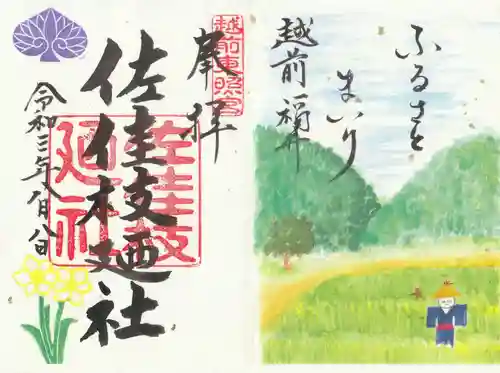 越前一福井
ふるさと
まいり
越前東照宮
奉拝
佐佳枝廼社
佐佳枝
廼社
令和三年八月八日